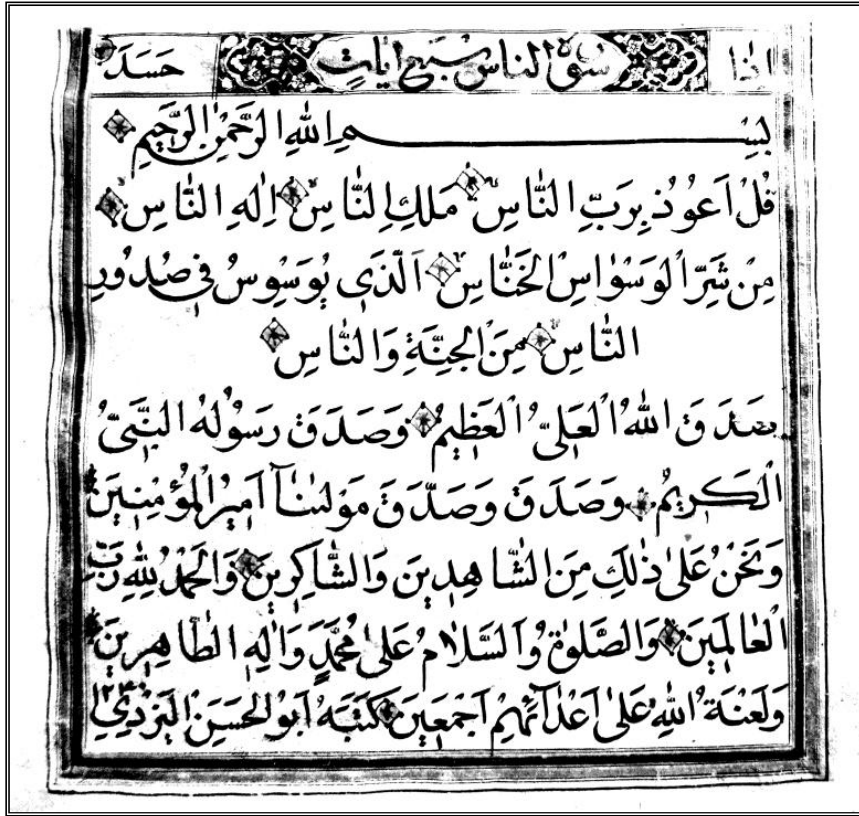 اِذَا سورة الناس سبع ايات حَسَدَ
بِسْمِ اللّٰهِ الرَّحْمٰنِ الرَّحيمِ
قُلْ اَعوُذُ بِرَبِّ النّٰاسِ مَلِكِ النّٰاسِ اِلٰهِ النّٰاسِ
مِنْ شَرِّ الْوَسْوٰاسِ الْخَنّٰاسِ اَلَّذى يُوَسْوِسُ فى صُدُورِ
النّٰاسِ مِنَ الْجِنَّةِ وَالنّٰاسِ
صَدَقَ اللّٰهُ الْعَلِىُّ الْعَظيمُ وَصَدَقَ رَسُولُهُ النَّبِىُّ
الْكَريمُ وَصَدَقَ وَصَدَّقَ مَوْلٰينٰا اَميرُ الْمُؤْمِنينَ
وَنَحْنُ عَلىٰ ذٰلِكَ مِنَ الشّٰاهِدينَ وَالشّٰاكِرينَ وَالْحَمْدُ لِلّٰهِ رَبِّ
الْعٰالَمينَ وَالصَّلوٰةُ وَالسَّلٰامُ عَلىٰ مُحَمَّدٍ وَاٰلِهِ الطّٰاهِرينَ
وَلَعْنَةُ اللّٰهِ عَلىٰ اَعْدٰآئِهِمْ اَجْمَعينَ كَتَبَهُ اَبُو الْحَسَنِ الْيَزْدى